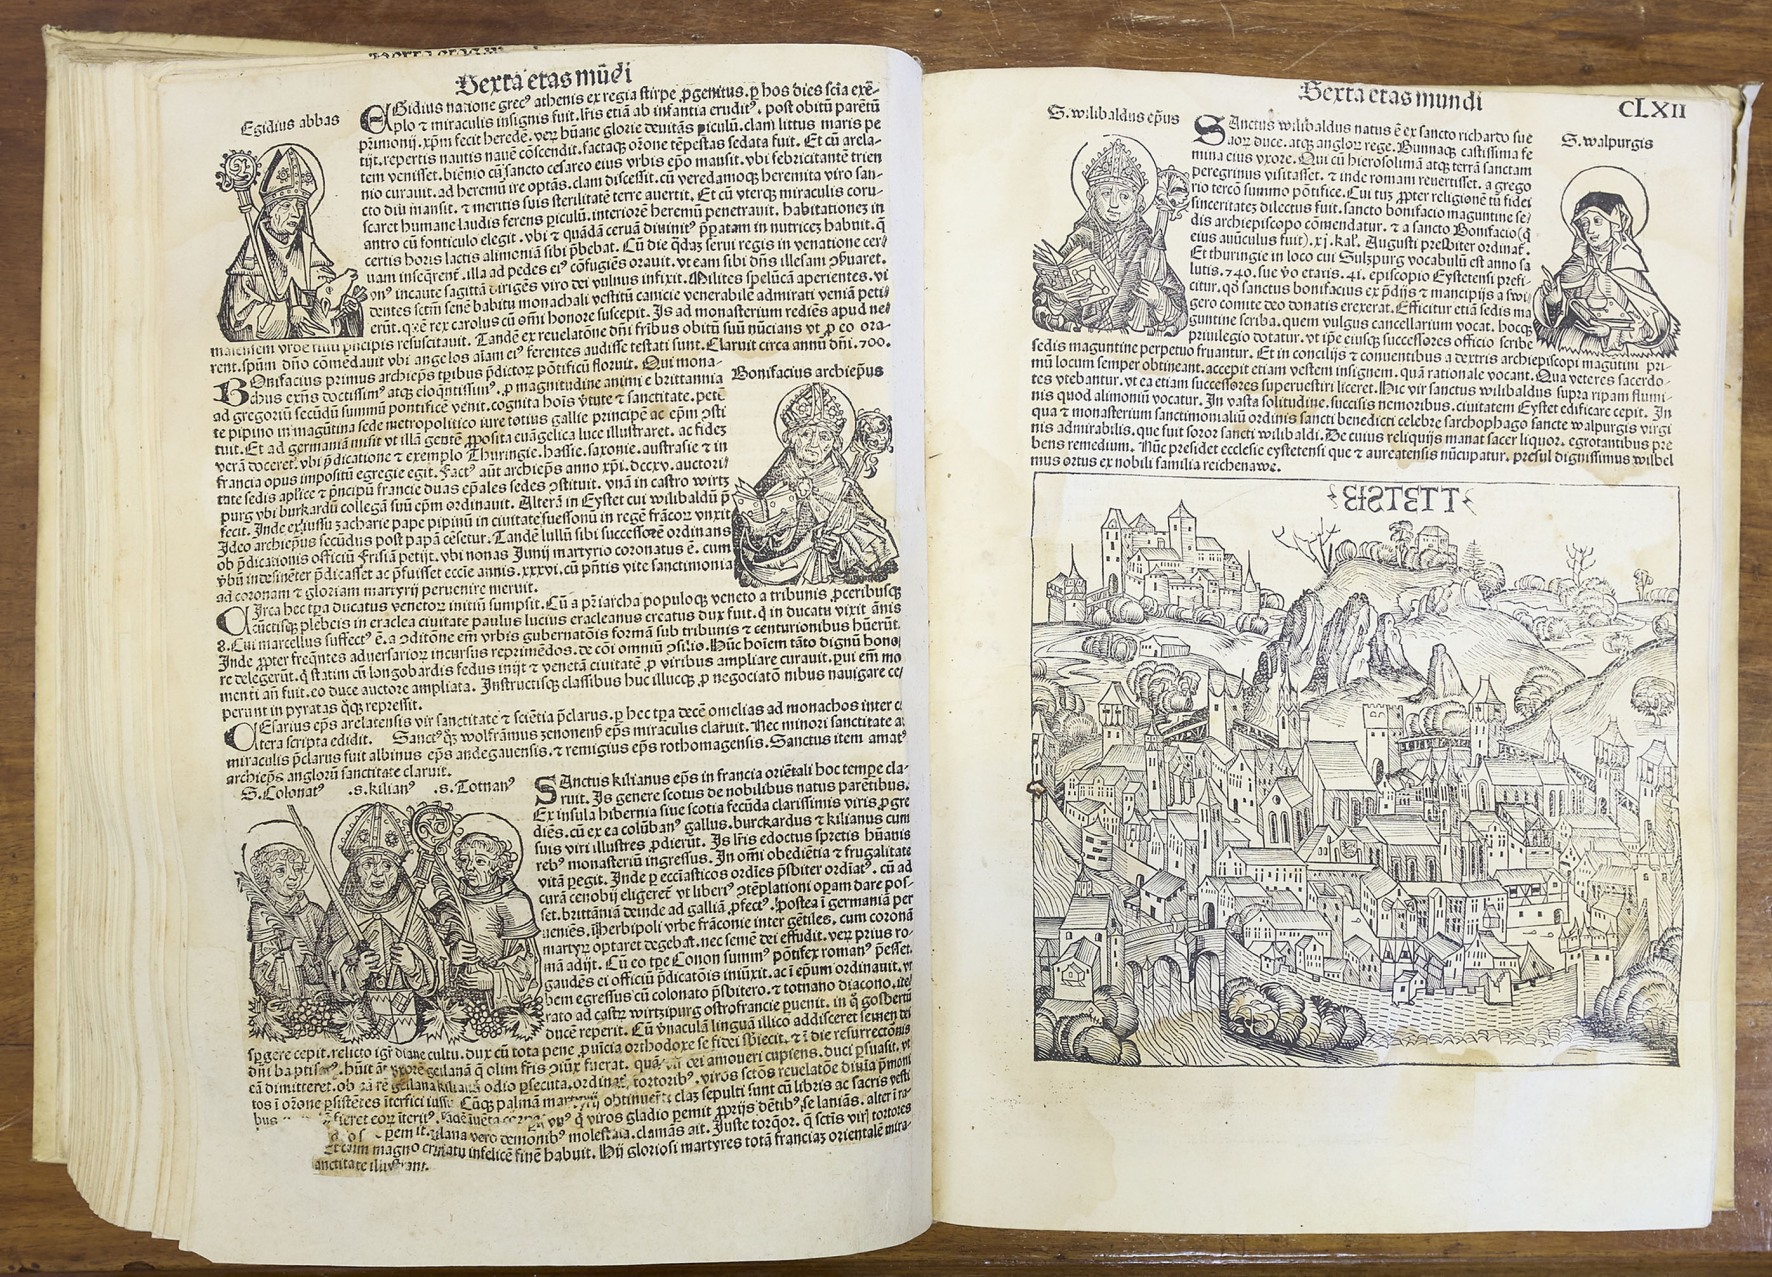 Sexta etas mūdi
Egidius abbas
EGidius natione grecꝰ athenis ex regia stirpe ꝓgenitus. ꝑ hos dies scīa exē-
plo ⁊ miraculis insignis fuit. lr̄is etiā ab infantia eruditꝰ. post obitū parētū
pr̄imonij. xp̄m fecit heredē. veꝝ hūane glorie deuitās ꝑiculū. clam littus maris pe
tijt. repertis nautis nauē cōscendit. factaqꝫ orōne tēpestas sedata fuit. Et cū arela-
tem venisset. biēnio cū sancto cesareo eius vrbis ep̄o mansit. vbi febricitantē trien
nio curauit. ad heremū ire optās. clam discessit. cū veredamoqꝫ heremita viro san-
cto diu mansit. ⁊ meritis suis sterilitatē terre auertit. Et cū vterqꝫ miraculis coru-
scaret humane laudis ferens ꝑiculū. interiorē heremū penetrauit. habitationeꝫ in
antro cū fonticulo elegit. vbi ⁊ quādā ceruā diuinitꝰ p̄paratam in nutriceꝫ habuit. q̄
certis horis lactis alimoniā sibi p̄bebat. Cū die q̄daꝫ serui regis in venatione cer/
uam inseq̄rent̄. illa ad pedes eiꝰ cōfugiēs orauit. vt eam sibi dn̄s illesam ↄseruaret.
vnꝰ incaute sagittā dirigēs viro dei vulnus infixit. Milites spelūcā aperientes. vi
dentes sctm̄ senē habitu monachali vestitū canicie venerabilē admirati veniā peti/
erūt. quē rex carolus cū om̄i honore suscepit. Is ad monasterium rediēs apud ne/
resuscitauit. Tandē ex reuelatōne dn̄i fribus obitū suū nūcians vt ꝓ eo ora-
rent. spm̄ dn̄o cōmēdauit vbi angelos aīam eiꝰ ferentes audisse testati sunt. Claruit circa annū dn̄i. 700.
Bonifacius archiep̄us
BOnifacius primus archiep̄s tp̄ribus p̄dictoꝝ pōtificū floruit. Qui mona-
chus exn̄s doctissimꝰ atqꝫ eloquētissimꝰ. ꝓ magnitudine animi e brittannia
ad gregoriū secūdū summū pontificē venit. cognita hoīs v̄tute ⁊ sanctitate. petē
te pipino in magūtina sede metropolitico iure totius gallie principē ac ep̄m ↄsti
tuit. Et ad germaniā misit vt illā gentē ꝓposita euāgelica luce illustraret. ac fideꝫ
verā doceret. vbi p̄dicatione ⁊ exemplo Thuringie. hassie. saxonie. australie ⁊ in
francia opus impositū egregie egit. Factꝰ aūt archiep̄s anno xp̄i. dccxv. auctori/
tate sedis ap̄lice ⁊ p̄ncipū francie duas ep̄ales sedes ↄstituit. vnā in castro wirtz
purg vbi burkardū collegā suū ep̄m ordinauit. Alterā in Eystet cui wilibaldū p̄
fecit. Inde ex iussu zacharie pape pipinū in ciuitate suessonū in regē frācoꝝ vnxit
Ideo archiep̄us secūdus post papā cēsetur. Tandē lullū sibi successorē ordinans
ob p̄dicationis officiū Frisiā petijt. vbi nonas Junij martyrio coronatus ē. cum
v̄bū indesinēter p̄dicasset ac p̄fuisset eccīe annis. xxxvi. cū p̄ntis vite sanctimonia
ad coronam ⁊ gloriam martyrij peruenire meruit.
CIrca hec tp̄a ducatus venetoꝝ initiū sumpsit. Cū a pr̄iarcha populoqꝫ veneto a tribunis ꝓceribusqꝫ
cūctisqꝫ plebeis in eraclea ciuitate paulus lucius eracleanus creatus dux fuit. q̄ in ducatu vixit ānis
8. Cui marcellus suffectꝰ ē. a ↄditōne em̄ vrbis gubernatōis formā sub tribunis ⁊ centurionibus hūerūt.
Inde ꝓpter freq̄ntes aduersarioꝝ incursus reprimēdos. de cōi omniū ↄsilio. Hūc hoīem tāto dignū hono/
re delegerūt. q̄ statim cū longobardis fedus inijt ⁊ venetā ciuitatē ꝓ viribus ampliare curauit.
menti an̄ fuit. eo duce auctore ampliata. Instructisqꝫ classibus huc illucqꝫ ꝓ negociatōnibus nauigare ce/
perunt in pyratas q̄qꝫ repressit.
CEsarius ep̄s arelatensis vir sanctitate ⁊ sciētia p̄clarus. ꝑ hec tp̄a decē omelias ad monachos inter
tera scripta edidit. Sanctꝰ q̄ꝫ wolframus zenonensis ep̄s miraculis claruit. Nec minori sanctitate
miraculis p̄clarus fuit albinus ep̄s andegauensis. ⁊ remigius ep̄s rothomagensis. Sanctus item amatꝰ
archiep̄s anglorū sanctitate claruit.
S. Colonatꝰ .s. kilianꝰ .s. Totnanꝰ
SAnctus kilianus ep̄s in francia oriētali hoc tempe cla-
ruit. Is genere scotus de nobilibus natus parētibus.
Ex insula hibernia siue scotia fecūda clarissimis viris ꝓgre
diēs. cū ex ea colūbanꝰ gallus. burckardus ⁊ kilianus cum
suis viri illustres ꝓdierūt. Is lr̄is edoctus spretis hūanis
rebꝰ monasteriū ingressus. In om̄i obediētia ⁊ frugalitate
vitā ꝑegit. Inde ꝑ eccīasticos ordies p̄sbiter ordiatꝰ. cū ad
curā cenobij eligeret̄ vt liberiꝰ ↄtēplationi opam dare pos-
set. brittāniā deinde ad galliā ꝓfectꝰ. postea ī germaniā per
ueniēs. Herbipoli vrbe frāconie inter gētiles. cum coronā
martyꝝ optaret degebat. nec semē dei effudit. veꝝ prius ro-
mā adijt. Cū eo tp̄e Conon summꝰ pōtifex romanꝰ p̄esset.
gaudēs ei officiū p̄dicatōis iniūxit. ac ī ep̄um ordinauit.
bem egressus cū colonato p̄sbitero. ⁊ totnano diacono.
rato ad castꝝ wirtzpurg ostrofrancie ꝑuenit. in q̄ gosbertū
ducē reperit. Cū v̄naculā linguā illico addisceret semen dei
spgere cepit. relicto igr̄ diane cultu. dux cū tota pene ꝓuīcia orthodoxe se fidei sbiecit. ⁊ ī die resurrectōnis
dn̄i baptisatꝰ. hūit aūt vxorē geilanā q̄ olim fr̄is ↄiūx fuerat. quā cū dei amoueri cupiens. duci ꝑsuasit. vt
eā dimitteret. ob cā rē geilana kilianū odio ꝑsecuta. ordinat̄. tortoribꝰ. viros sctōs reuelatōe diuīa p̄moni
tos ī orōne ꝑsistētes īterfici iussit. Cūqꝫ palmā martyrij obtinuerāt claꝫ sepulti sunt cū libris ac sacris vesti
bus q̄ viros gladio ꝑemit ꝓprijs dētibꝰ se laniās. alter
geilana vero demonibꝰ molestata. clamās ait. Juste torqꝛ. q̄ sctōs viros tortores
Et cum magno cruciatu infelicē finē habuit. Hij gloriosi martyres totā franciaꝫ orientalē mira-
Sexta etas mundi
CLXII
S. wilibaldus ep̄us
S. walpurgis
SAnctus wilibaldus natus ē ex sancto richardo sue
uoꝝ duce. atqꝫ angloꝝ rege. Bunnaqꝫ castissima fe
mina eius vxore. Qui cū hierosolimā atqꝫ terrā sanctam
peregrinus visitasset. ⁊ inde romam reuertisset. a grego
rio tercō summo pōtifice. Cui tuꝫ ꝓpter religionē tū fidei
sinceritateꝫ dilectus fuit. sancto bonifacio maguntine se/
dis archiepiscopo cōmendatur. ⁊ a sancto Bonifacio (q̄
eius auūculus fuit). xj. kal̄. Augusti presbiter ordinat̄.
Et thuringie in loco cui Sulzpurg vocabulū est anno sa
lutis. 740. sue v̄o etatis. 41. episcopio Eystetensi prefi-
citur. qd̄ sanctus bonifacius ex p̄dijs ⁊ mancipijs a swi
gero comite deo donatis erexerat. Efficitur etiā sedis ma
guntine scriba. quem vulgus cancellarium vocat. hocqꝫ
priuilegio dotatur. vt ip̄e eiusqꝫ successores officio scribe
sedis maguntine perpetuo fruantur. Et in concilijs ⁊ conuentibus a dextris archiepiscopi magūtini pri-
mū locum semper obtineant. accepit etiam vestem insignem. quā rationale vocant. Qua veteres sacerdo-
tes vtebantur. vt ea etiam successores superuestiri liceret. Hic vir sanctus wilibaldus supra ripam flumi-
nis quod alimoniū vocatur. In vasta solitudine. succisis nemoribus. ciuitatem Eystet edificare cepit. In
qua ⁊ monasterium sanctimonialiū ordinis sancti benedicti celebre sarchophago sancte walpurgis virgi
nis admirabilis. que fuit soror sancti wilibaldi. De cuius reliquijs manat sacer liquor. egrotantibus pre
bens remedium. Nūc presidet ecclesie eystetensi que ⁊ aureatensis nūcupatur. presul dignissimus wilhel
mus ortus ex nobili familia reichenawe.
EISTETT